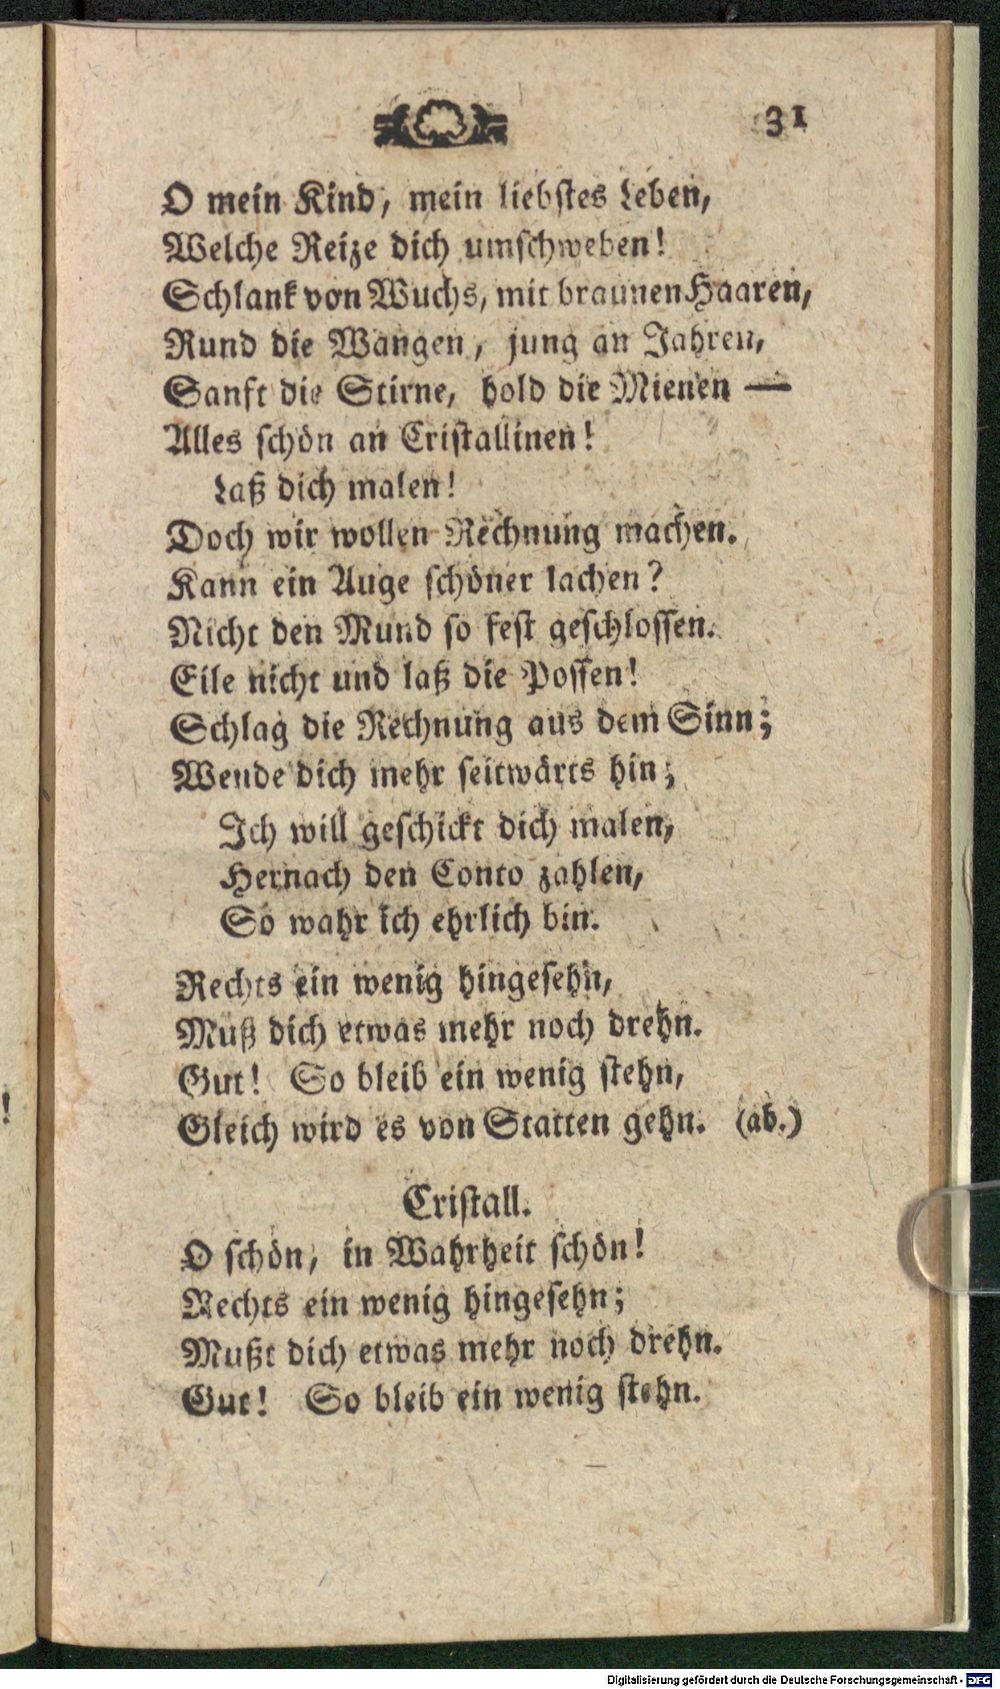 31
O mein Kind, mein liebstes Leben,
Welche Reize dich umschweben!
Schlank von Wuchs, mit braunen Haaren,
Rund die Wangen, jung an Jahren,
Sanft die Stirne, hold die Mienen —
Alles schön an Cristallinen!
Laß dich malen!
Doch wir wollen Rechnung machen.
Kann ein Auge schöner lachen?
Nicht den Mund so fest geschlossen.
Eile nicht und laß die Possen!
Schlag die Rechnung aus dem Sinn;
Wende dich mehr seitwärts hin;
Ich will geschickt dich malen,
Hernach den Conto zahlen,
So wahr ich ehrlich bin.
Rechts ein wenig hingesehn,
Muß dich etwas mehr noch drehn.
Gut! So bleib ein wenig stehn,
!
Gleich wird es von Statten gehn. (ab.)
Cristall.
O schön, in Wahrheit schön!
Rechts ein wenig hingesehn;
Mußt dich etwas mehr noch drehn.
Gut! So bleib ein wenig stehn.
Digitalisierung gefördert durch die Deutsche Forschungsgemeinschaft - DFG